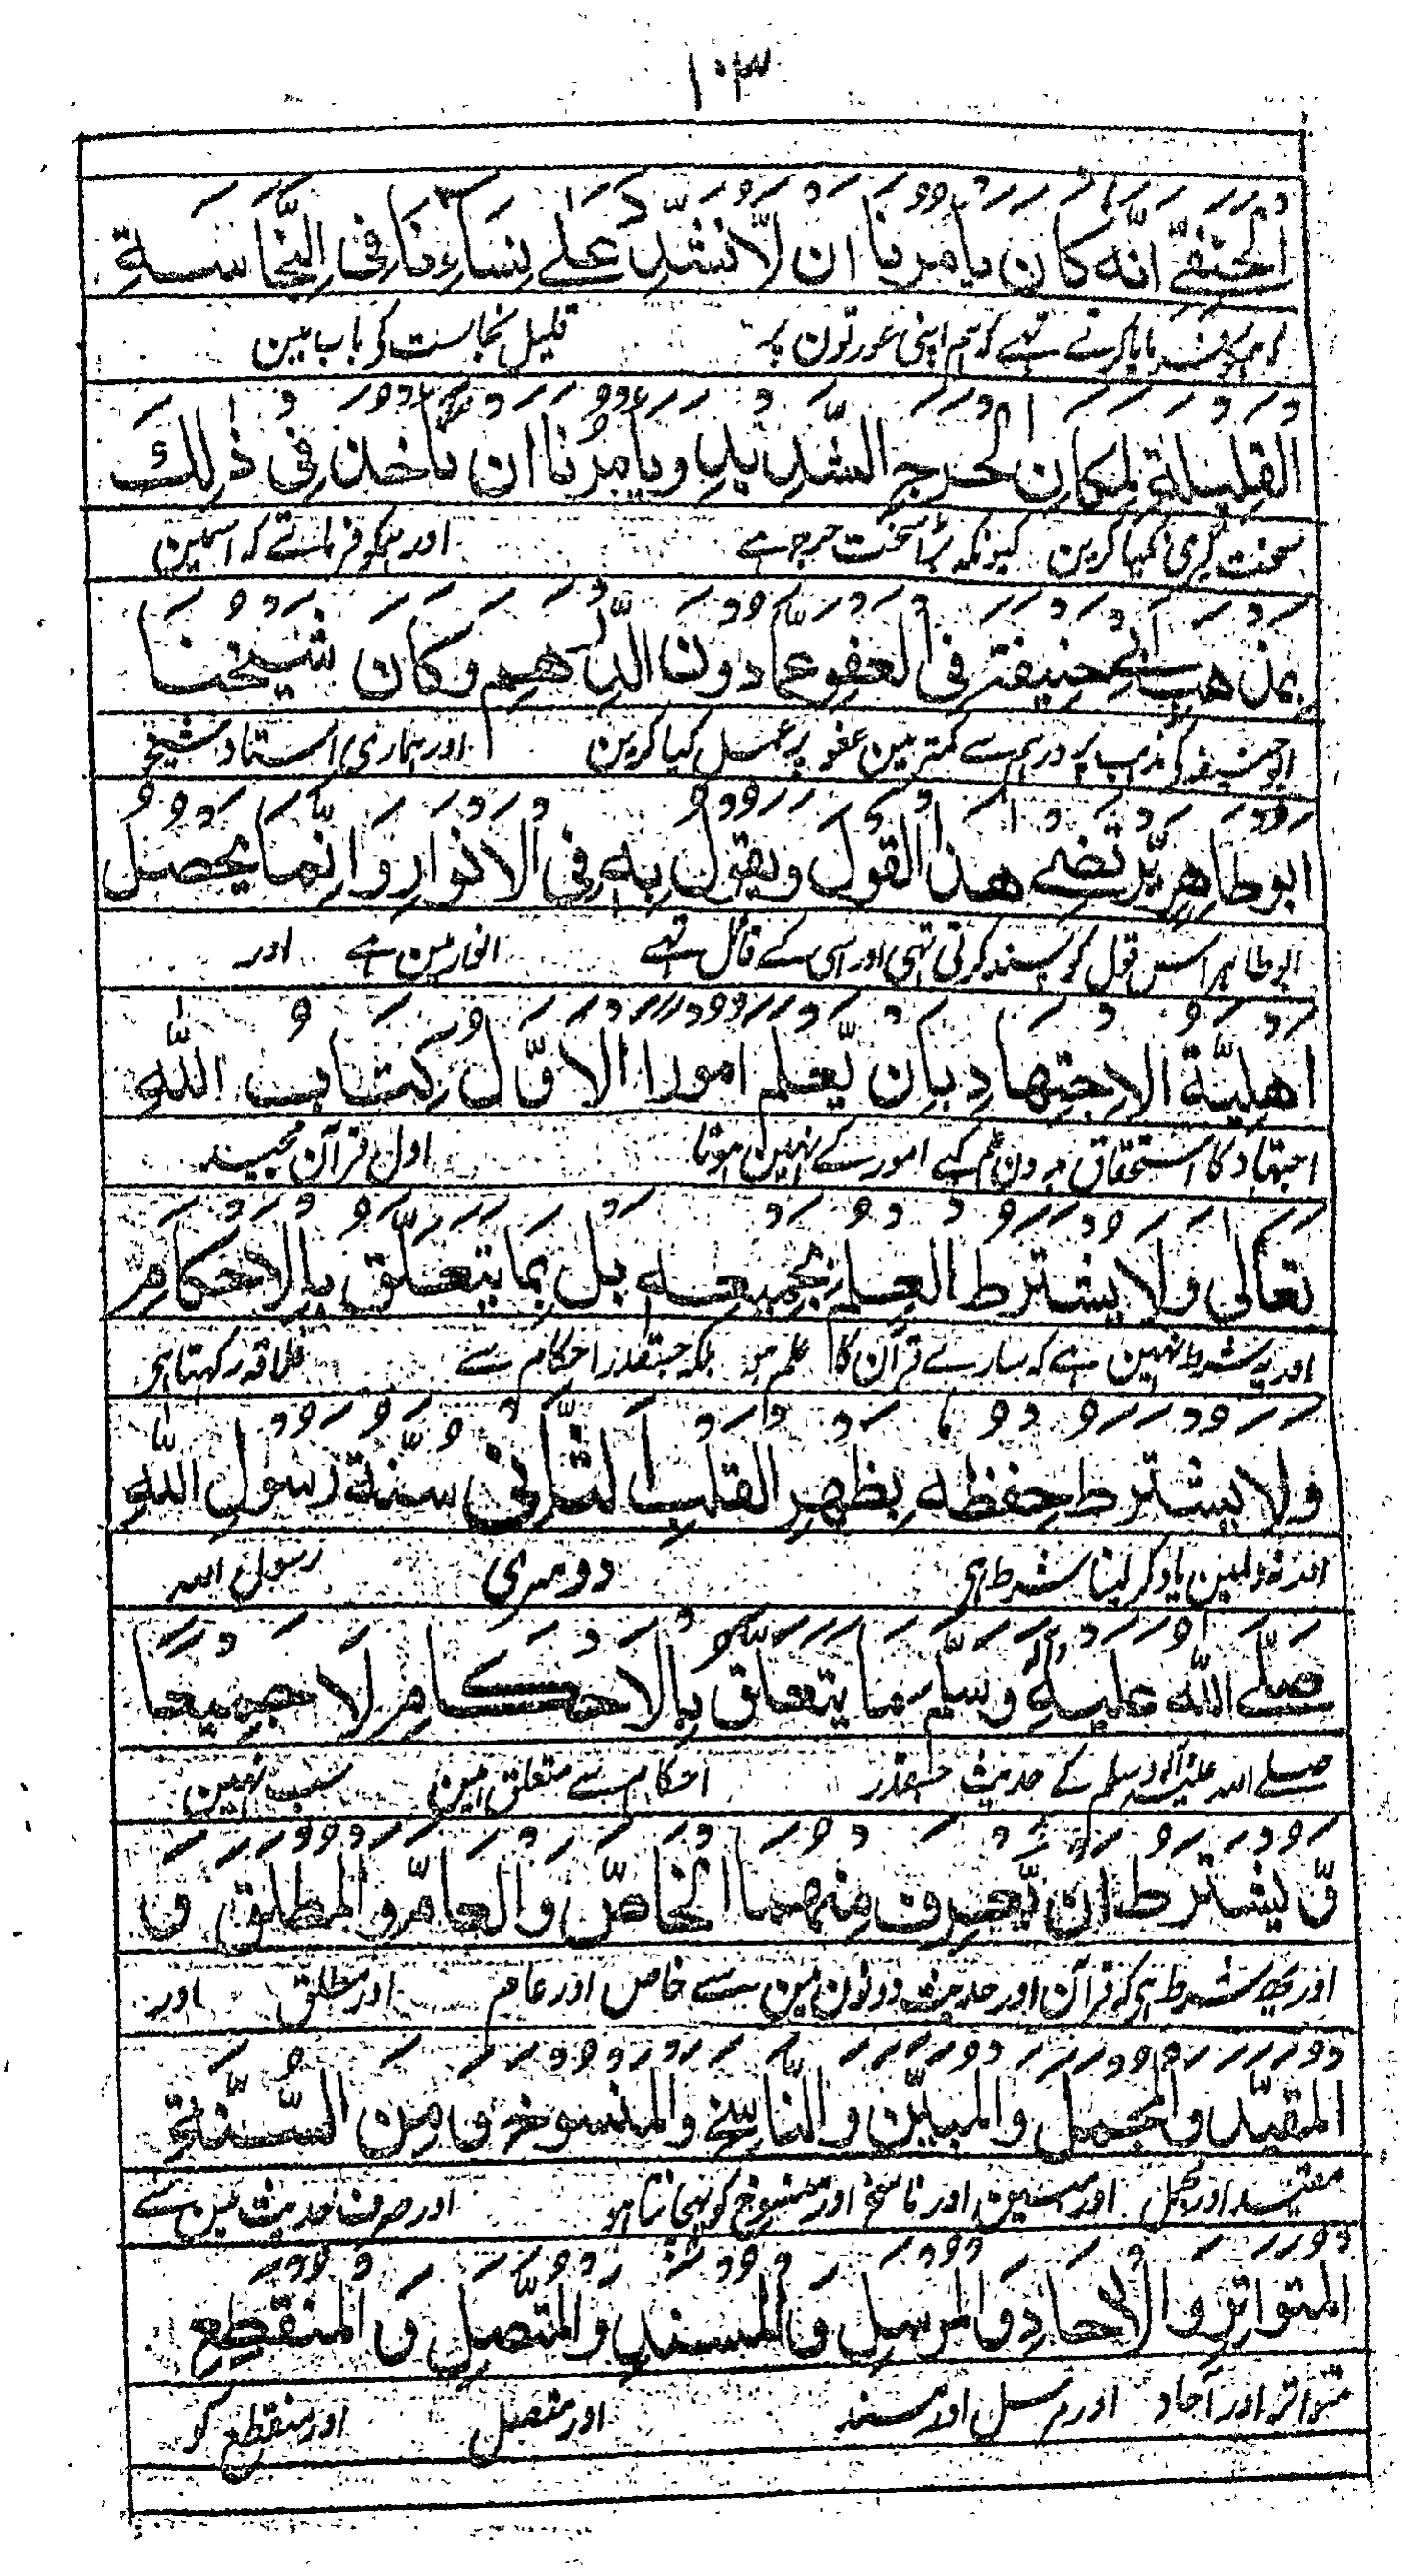 ١٠٣
الْحَنَفِيِّ اَنَّهٗ كَانَ يَأْمُرُنَا اَنْ لَّا نُشَدِّدَ عَلٰى نِسَاءِنَا فِى النَّجَاسَةِ
فرمایا کرتے تہے کہ ہم اپنی عورتون پر قلیل نجاست کے باب مین
الْقَلِيْلَةِ لِمَكَانِ الْحَرَجِ الشَّدِيْدِ وَيَأْمُرُنَا اَنْ نَأْخُذَ فِىْ ذٰلِكَ
سخت گیری نکیا کرین کیونکہ بڑا سخت حرج ہے اور ہمکو فرماتے کہ اسمین
بِمَذْهَبِ اَبِيْحَنِيْفَةَ فِى الْعَفْوِ عَمَّا دُوْنَ الدِّرْهَمِ وَكَانَ شَيْخُنَا
ابوحنیفہ کے مذہب پر درہم سے کمتر مین عفو پر عمل کیا کرین اور ہماری استاد شیخ
اَبُوْطَاهِرٍ يَّرْتَضِىْ هٰذَا الْقَوْلَ وَيَقُوْلُ بِهٖ فِى الْاَنْوَارِ وَاِنَّمَا يَحْصُلُ
ابوطاہر اس قول کو پسند کرتی تہی اور اسی کے قائل تہے انوار مین ہے اور
اَهْلِيَّةُ الْاِجْتِهَادِ بِاَنْ يَّعْلَمَ اُمُوْرًا الْاَوَّلُ كِتَابُ اللّٰهِ
اجتہاد کا استحقاق بدون علم کئے امور کے نہین ہوتا اول قرآن مجید
تَعَالٰى وَلَا يُشْتَرَطُ الْعِلْمُ بِجَمِيْعِهٖ بَلْ بِمَا يَتَعَلَّقُ بِالْاَحْكَامِ
اور یہ شرط نہین ہے کہ سارے قرآن کا علم ہو بلکہ جسقدر احکام سے علاقہ رکہتا ہو
وَلَا يُشْتَرَطُ حِفْظُهٗ بِظَهْرِ الْقَلْبِ الثَّانِىْ سُنَّةُ رَسُوْلِ اللّٰهِ
اور نہ دلمین یاد کر لینا شرط ہی دوسری رسول اللہ
صَلَّى اللّٰهُ عَلَيْهِ وَاٰلِهٖ وَسَلَّمَ مَا يَتَعَلَّقُ بِالْاَحْكَامِ لَا جَمِيْعُهَا
صلے اللہ علیہ وآلہ وسلم کے حدیث جسقدر احکام سے متعلق ہین سب نہین
وَّيُشْتَرَطُ اَنْ يَّعْرِفَ مِنْهُمَا الْخَاصَّ وَالْعَامَّ وَالْمُطْلَقَ وَ
اور یہ شرط ہی کہ قرآن اور حدیث دونون مین سے خاص اور عام اور مطلق اور
الْمُقَيَّدَ وَالْمُجْمَلَ وَالْمُبَيَّنَ وَالنَّاسِخَ وَالْمَنْسُوْخَ وَمِنَ السُّنَّةِ
مقید اور مجمل اور مبین اور ناسخ اور منسوخ کو پہچانتا ہو اور صرف حدیث مین سے
الْمُتَوَاتِرَ وَالْاٰحَادَ وَالْمُرْسَلَ وَالْمُسْنَدَ وَالْمُتَّصِلَ وَالْمُنْقَطِعَ
متواتر اور آحاد اور مرسل اور مسند اور متصل اور منقطع کو